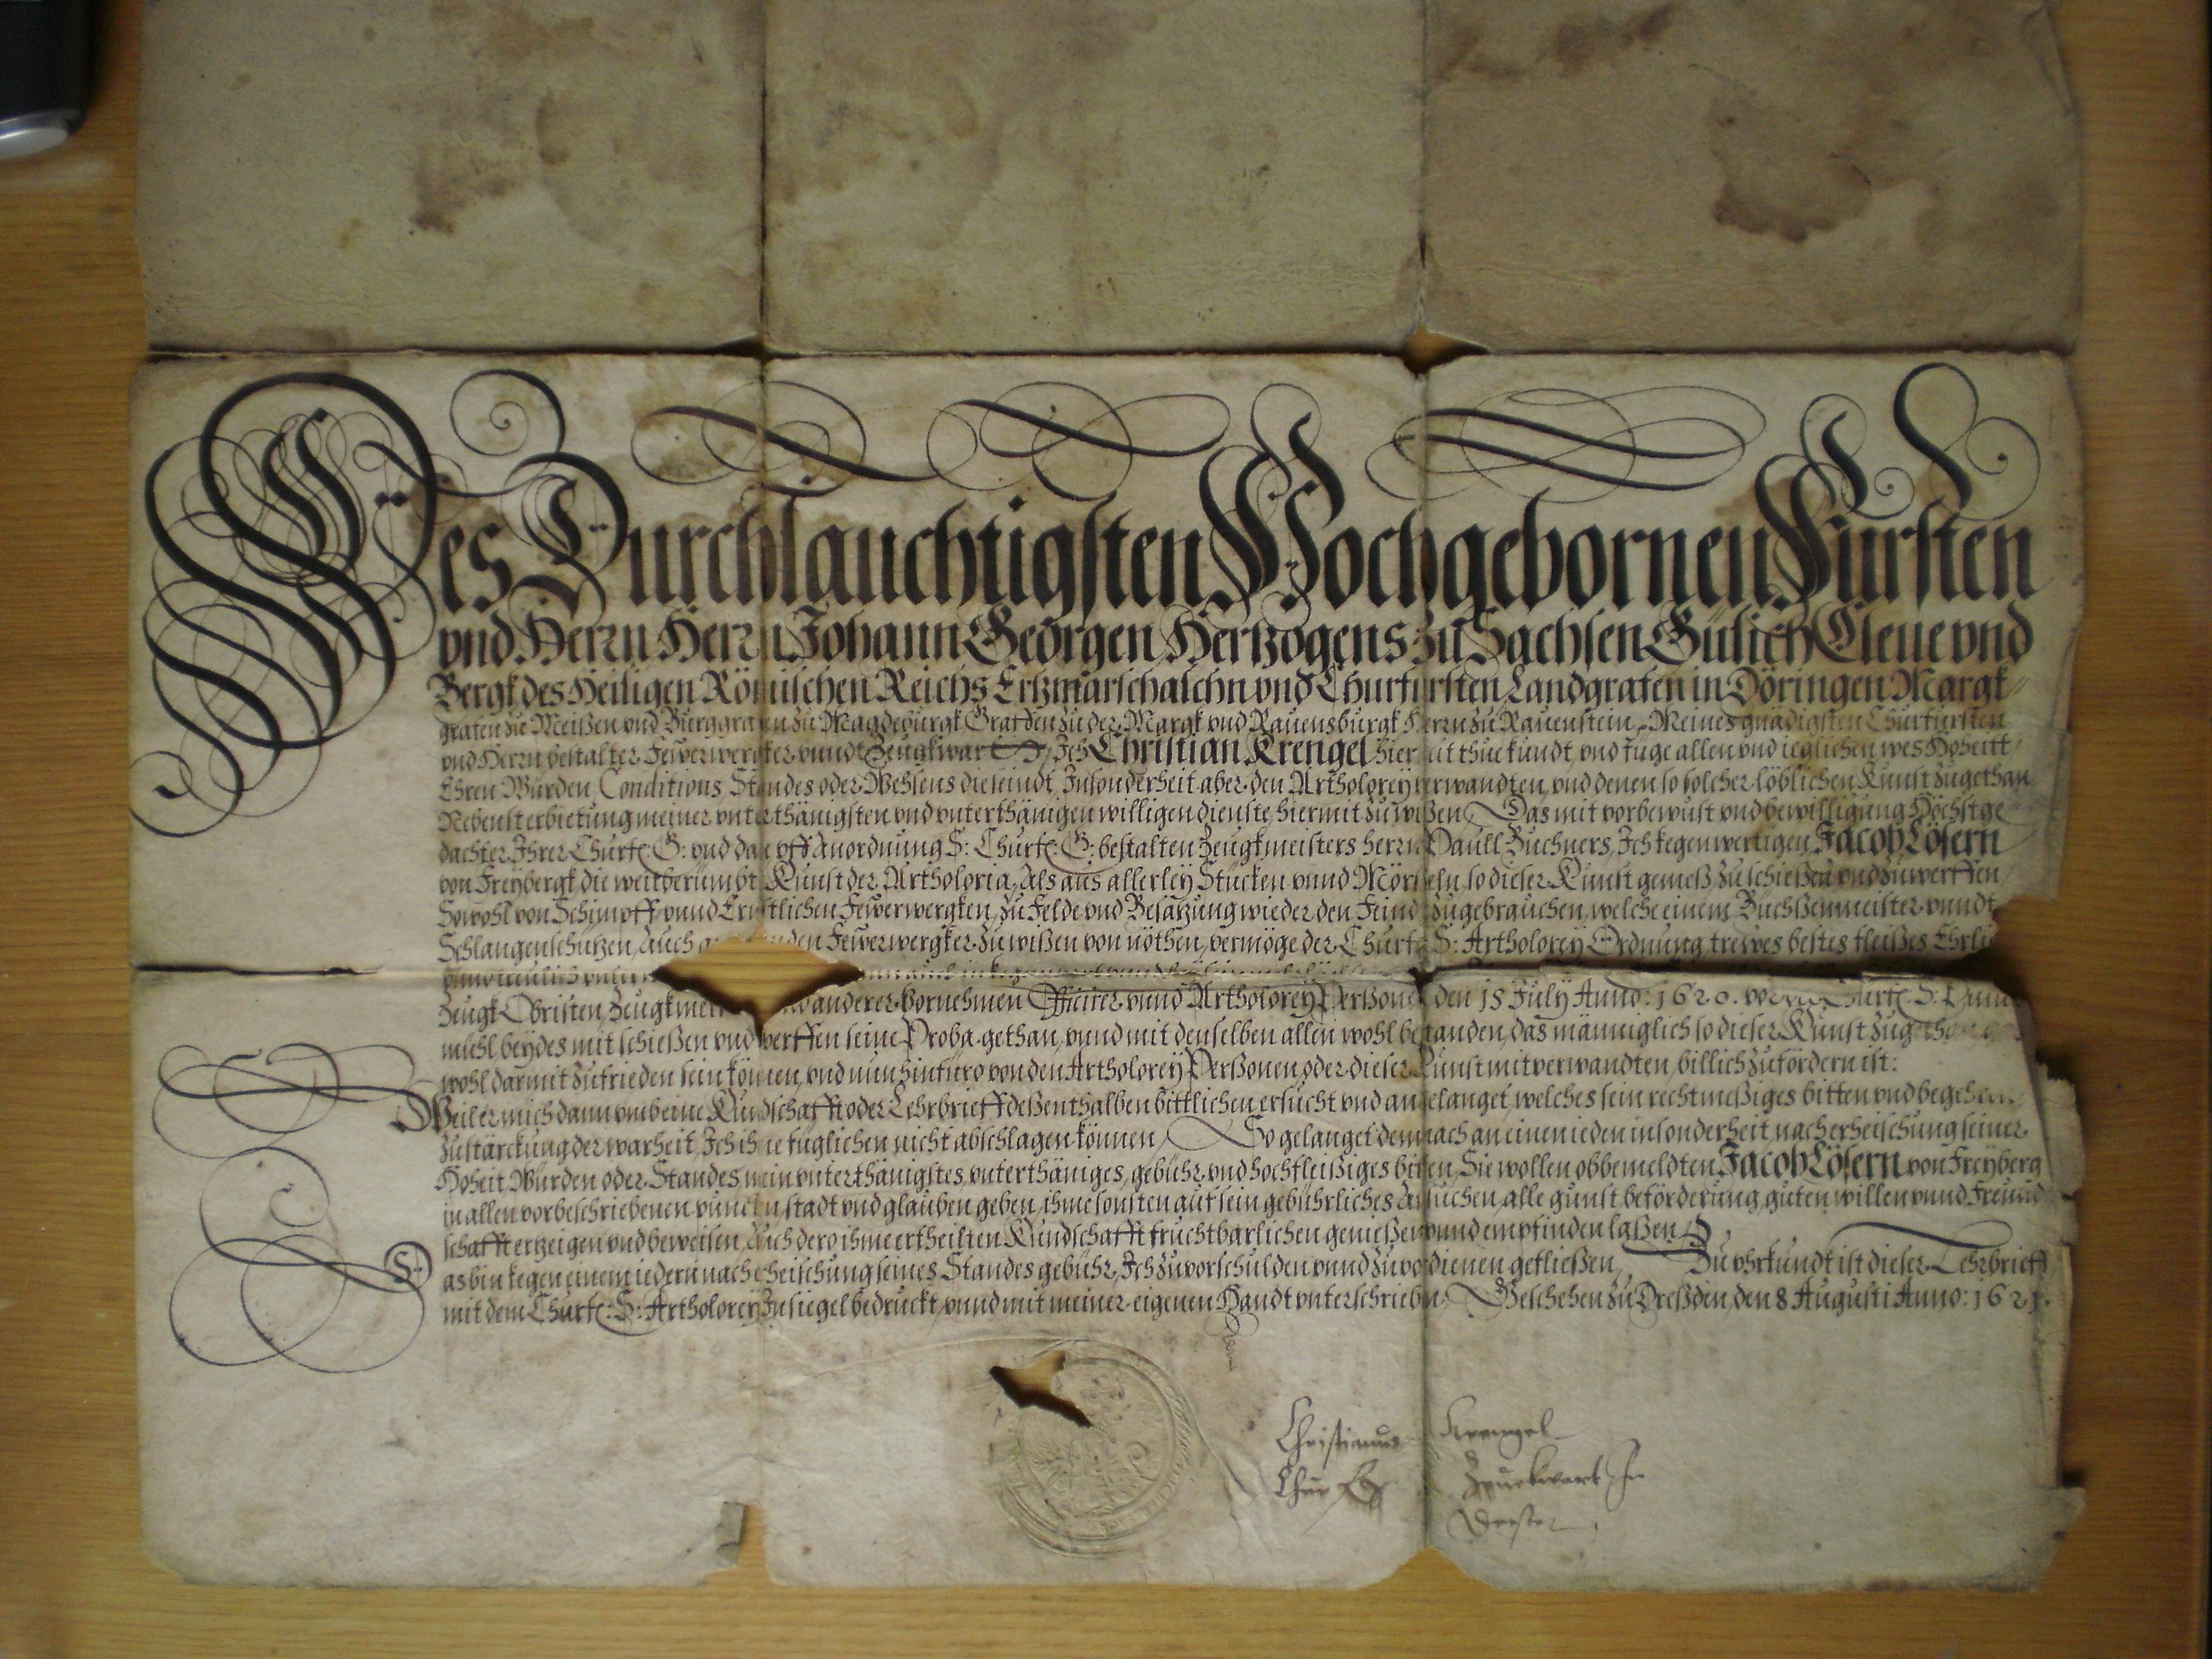 Des Durchlauchtigsten Hochgebornen Fürsten
vnd Herrn Herrn Johann Georgen Hertzogens zu Sachsen Gülich Cleue vnd
Bergk des Heiligen Römischen Reichs Ertzmarschalchn vnd Churfürsten Landgrafen in Döringen Margk-
grafen zu Meißen vnd Burggrafen zu Magdeburgk Graffen zu der Margk vnd Rauensburgk Herrn zu Rauenstein, Meines gnädigsten Churfürsten
vnd Herrn bestalter Fewerwergker vnndt Zeugkwart, Ich Christian Krengel hiermit thue kundt, vnd füge allen vnd ieglichen wes Hoheitt
Ehren Würden, Conditions, Standes oder Wehsens die seindt, Insonderheit aber den Artholorey verwandten, vnd denen so solcher löblichen Kunst zugethan
Nebenst erbietung meiner vnterthänigsten vnd vnterthänigen willigen dienste, hiermit zu wißen, Das mit vorbewust vnd bewilligung Höchstge
dachter Ihrer Churf: G: vnd dan vff Anordnung S: Churf: G: bestalten Zeugkmeisters herrn Paull Buchners, Ich kegenwertigen Jacob Lösern
von Freybergk die weitberümbte Kunst der Artholoria, Als aus allerley Stücken vnnd Mörseln, so dieser Kunst gemeß zu schießen vnd zu werffen
Sowohl von Schimpff vnnd Ernstlichen Fewerwergken, zu Felde vnd Besatzung wieder den Feind zugebrauchen, welche einem Buchßenmeister vnndt
Schlangenschützen, Auch den Fewerwergker zu wißen von nöthen, vermöge der Churf: S: Artholorey Ordnung trewes bestes fleißes Ehrli
Zeugk Obristen, Zeugkmei anderer vornehmen Officirer vnnd Artholorey Perßonen den 15 July Anno: 1620. vo Churf: S:
muhl beydes mit schießen vnd werffen seine Proba gethan, vnnd mit denselben allen wohl bestanden, das männiglich so dieser Kunst
wohl darmit zufrieden sein können, vnd nun hinfüro von den Artholorey Perßonen, oder dieser Kunst mitverwandten, billich zufördern ist:
Weil er mich dann vmb eine Kundschafft oder Lehrbrieff deßenthalben bittlichen ersucht vnd angelanget, welches sein rechtmeßiges bitten vnd begehren
zu stärckung der warheit, Ich ihme füglichen nicht abschlagen können, So gelanget demnach an einen ieden insonderheit nach erheischung seiner
Hoheit, Würden oder Standes mein vnterthänigstes, vnterthäniges, gebühr, vnd hochfleißiges bitten, Sie wollen obbemeldten Jacob Lösern von Freyberg
in allen vorbeschriebenen puncten stadt vnd glauben geben, ihme sonsten auf sein gebührliches ansuchen, alle gunst beförderung, guten willen vnnd Freund
schafft erzeigen vnd beweisen, Auch dero ihme ertheilten Kundschafft fruchtbarlichen genießen vnnd empfinden laßen,
Das bin kegen einem iedern nach erheischung seines Standes gebühr, Ich zuvorschulden vnnd zuvordienen gefließen, Zu vhrkundt ist dieser Lehrbrieff
mit dem Churf: S: Artholorey Insiegel bedruckt, vnnd mit meiner eigenen Handt vnterschrieben, Geschehen zu Dreßden, den 8 Augusti Anno: 1621.
Christianus Krengel
Zeuckwart In